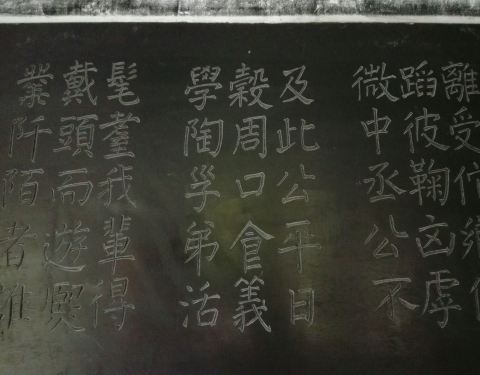 離受
蹈彼鞠凶
微中丞公不
及此公平日
穀周口食義
學陶弟活
髦耋我輩得
戴頭而遊
業阡陌者